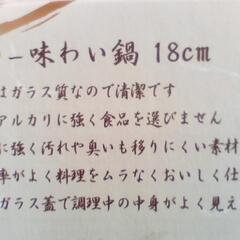 味わい鍋 18cm
はガラス質なので清潔です
アルカリに強く食品を選びません
に強く汚れや臭いも移りにくい素材
率がよく料理をムラなくおいしく仕
ガラス蓋で調理中の中身がよく見え